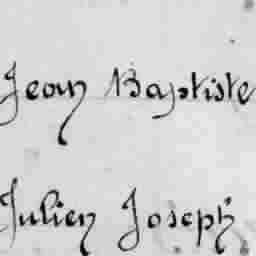 Jean Baptiste
Julien Joseph